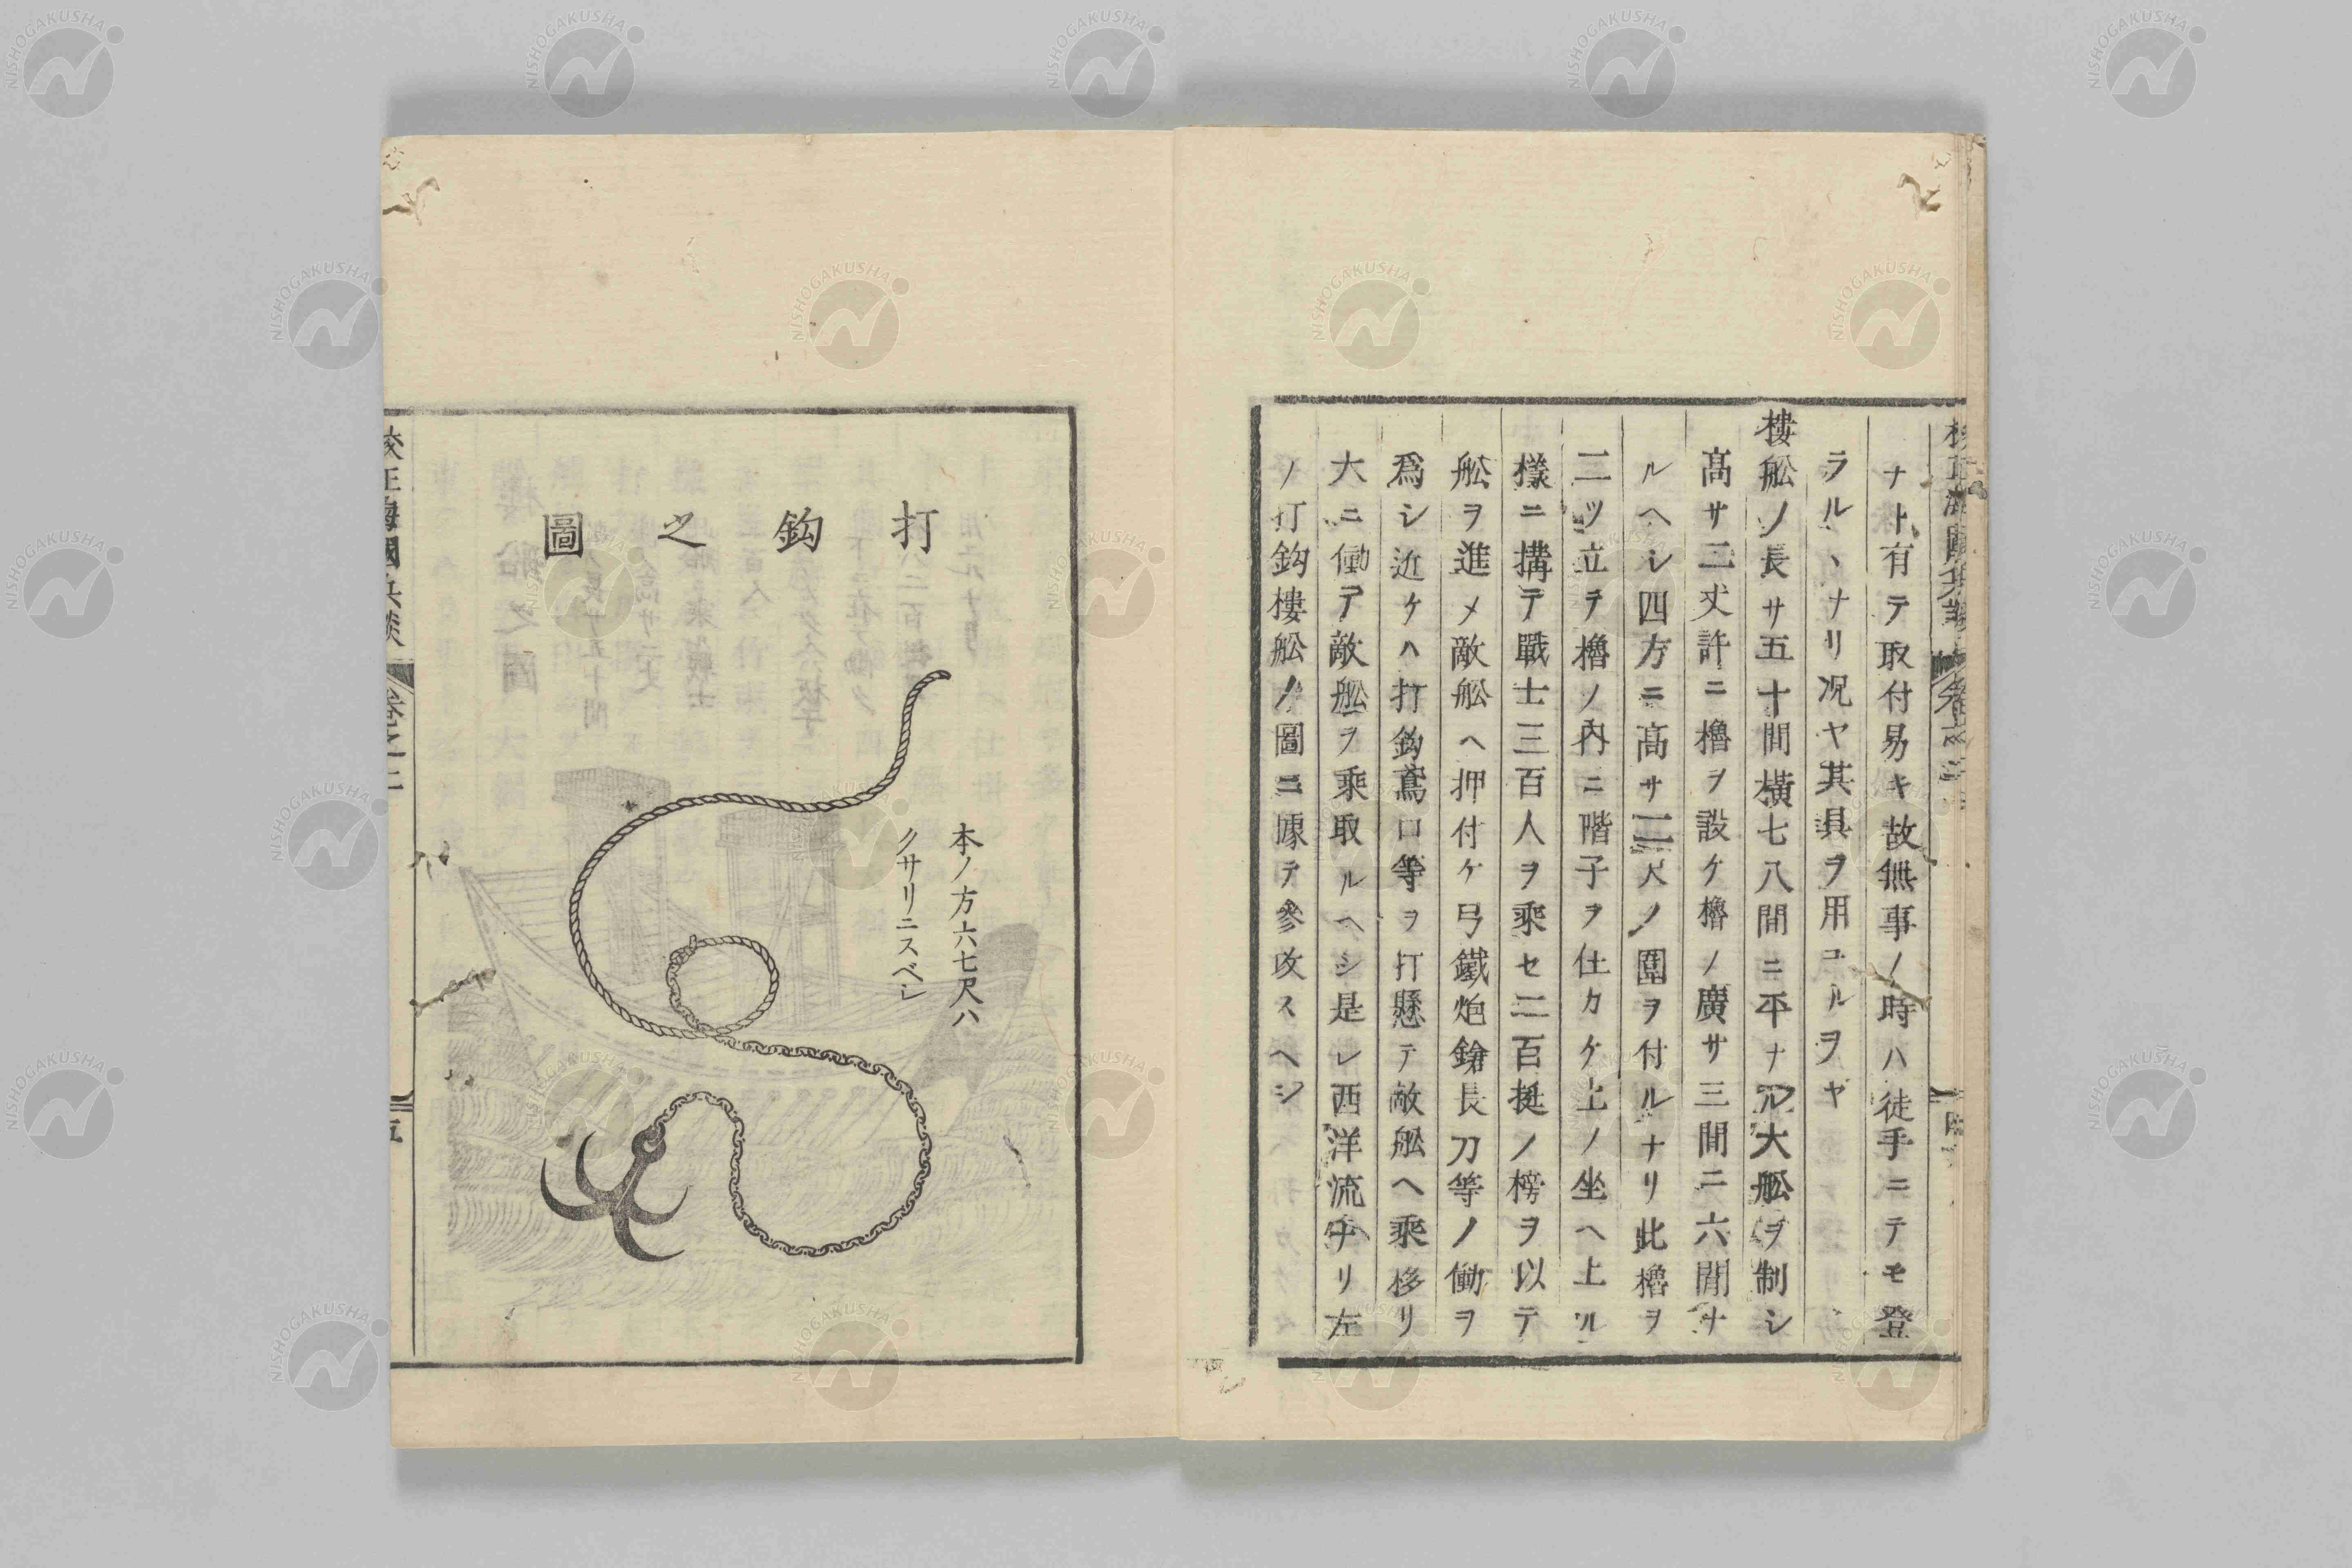 ナト有テ取付易キ故無事ノ時ハ徒手ニテモ登
ラルヽナリ况ヤ其具ヲ用ユルヲヤ
樓舩ノ長サ五十間横七八間ニ平ナル大舩ヲ制シ
髙サ三丈許ニ櫓ヲ設ケ櫓ノ廣サ三間ニ六間ナ
ルヘシ四方ニ髙サ二三尺ノ圍ヲ付ルナリ此櫓ヲ
二ツ立テ櫓ノ内ニ階子ヲ仕カケ上ノ坐ヘ上ル
樣ニ搆テ戰士三百人ヲ乘セ二百挺ノ榜ヲ以テ
舩ヲ進メ敵舩ヘ押付ケ弓鐵炮鎗長刀等ノ働ヲ
爲シ近ケハ打鈎鳶口等ヲ打懸テ敵舩ヘ乘移リ
大ニ働テ敵舩ヲ乘取ルヘシ是レ西洋流ナリ左
ノ打鈎樓舩ノ圖ニ據テ參攷スヘシ
打鈎之圖
本ノ方六七尺ハ
クサリニスベシ
校正海國兵談
卷之二
五
NISHOGAKUSHA